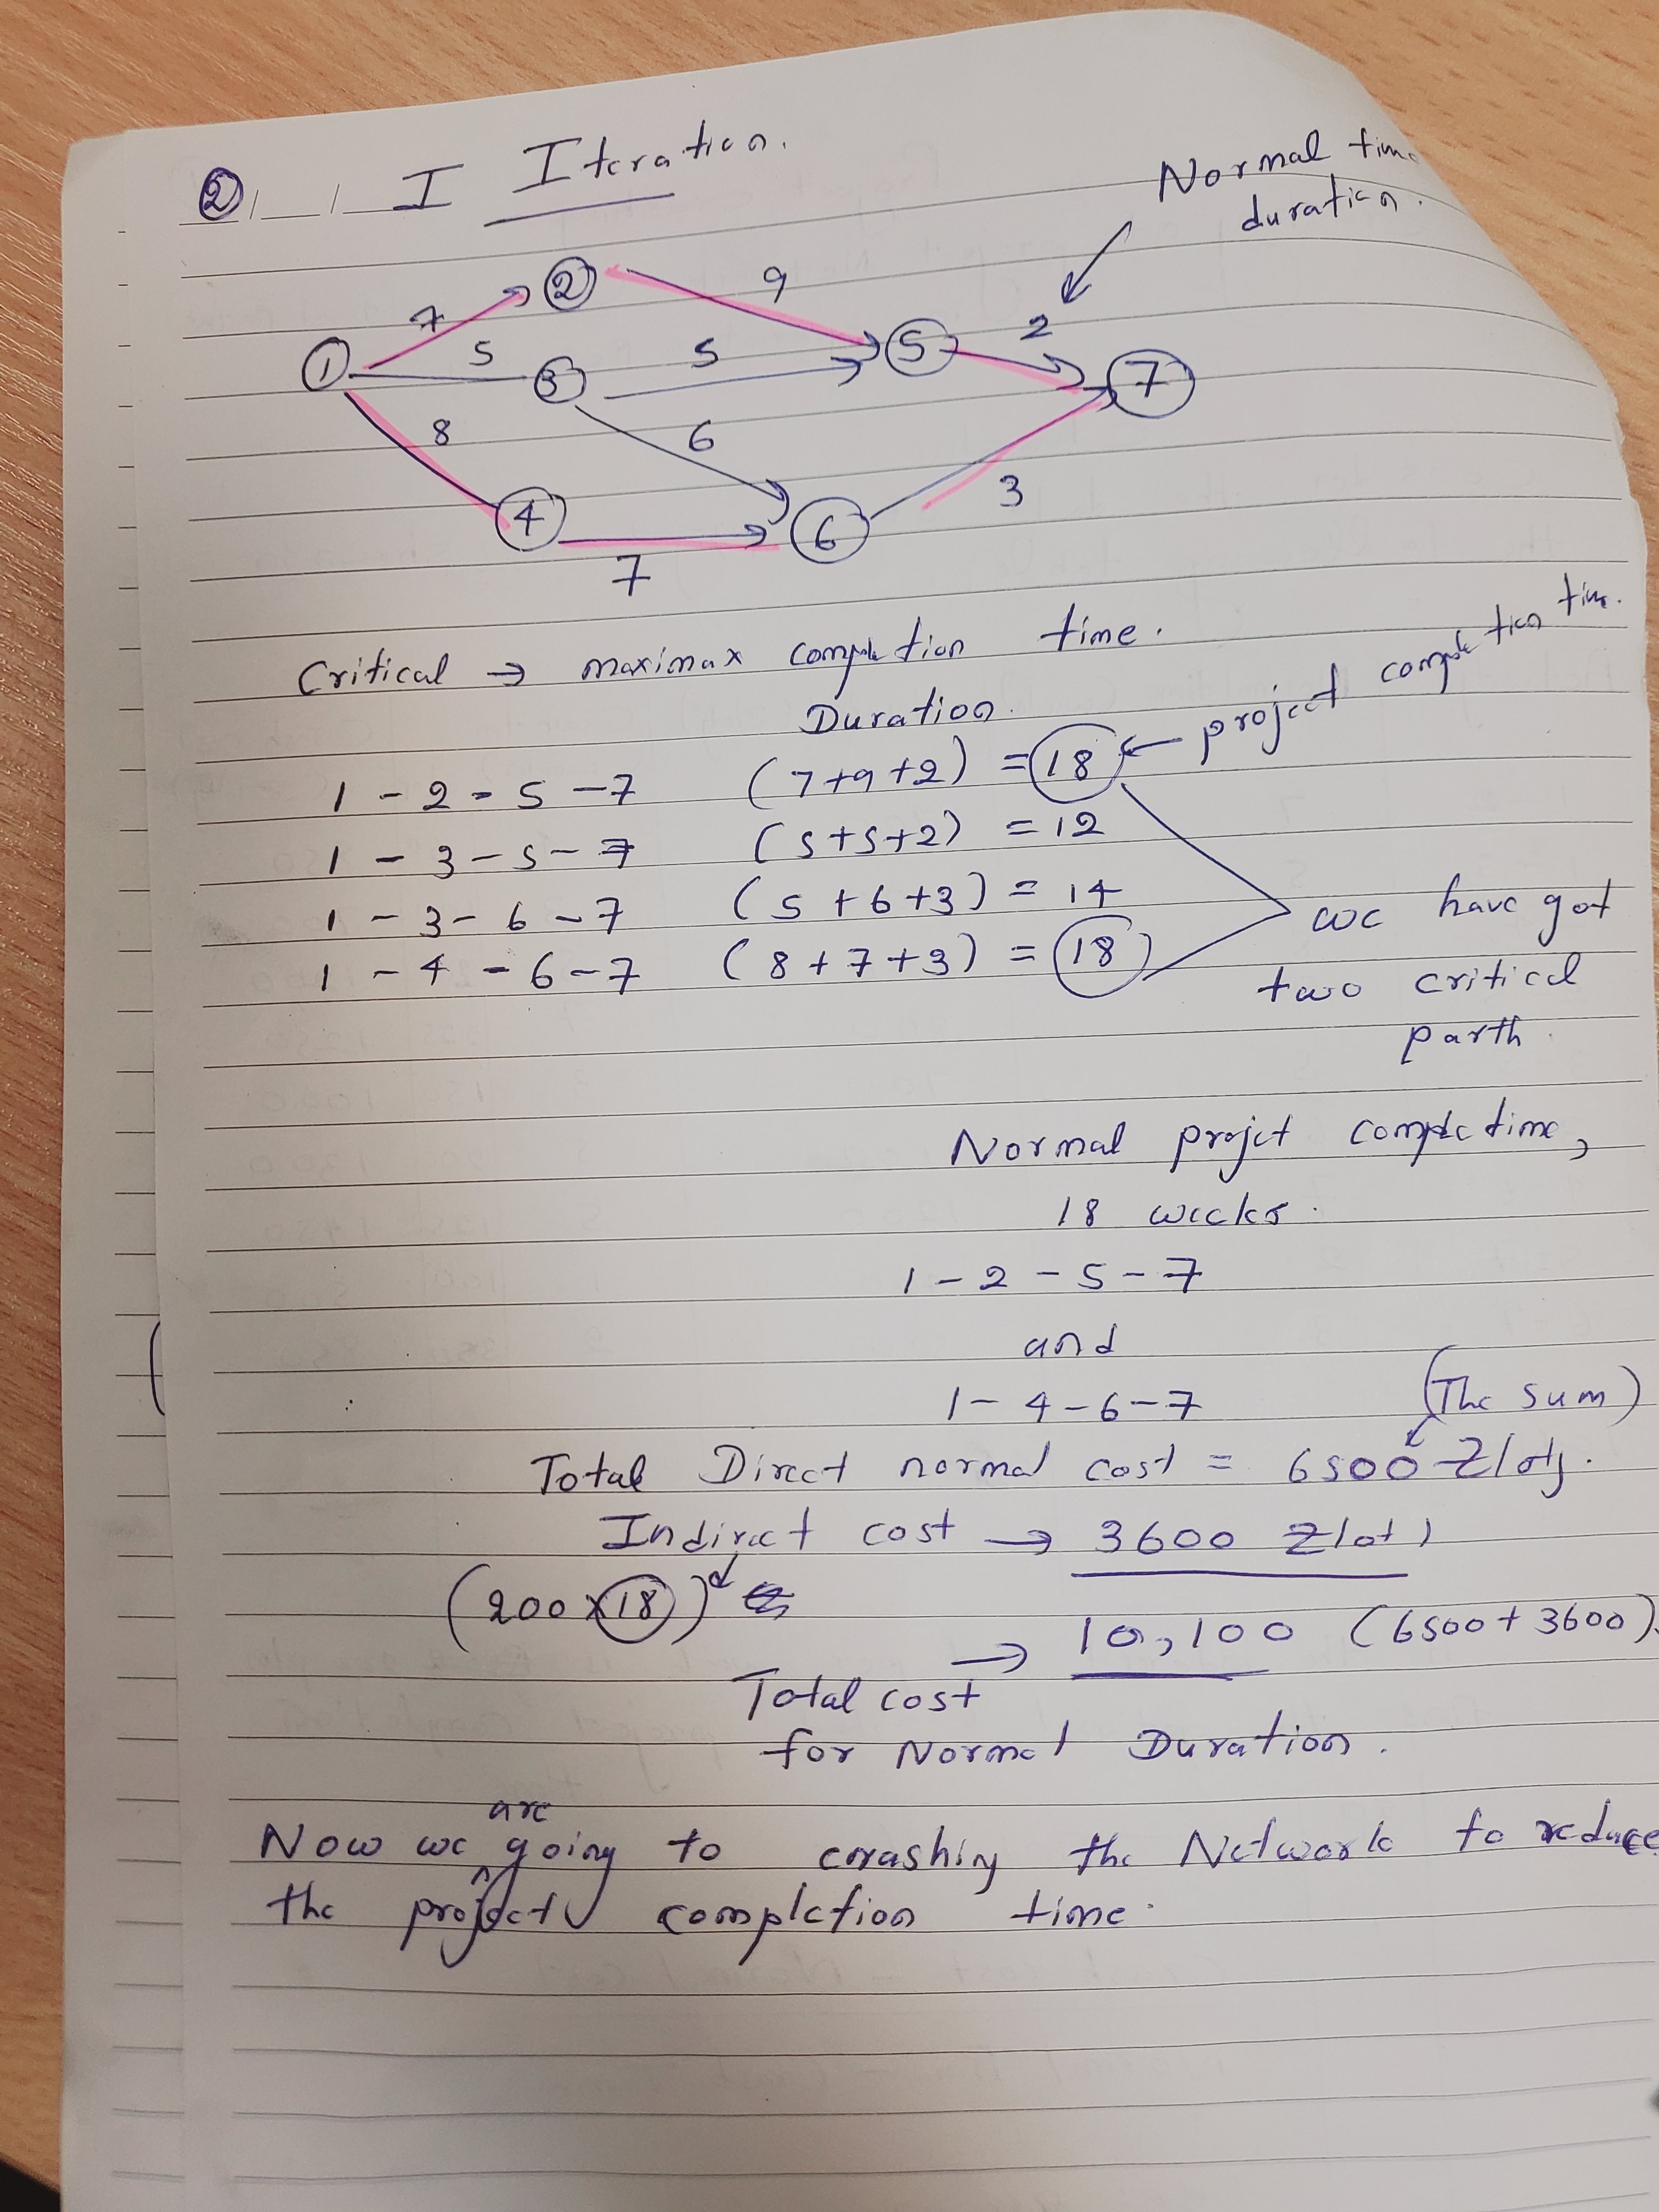 ② I Iteration.
Normal time
duration.
7 ② 9
① 5 ③ 5 ⑤ 2 ⑦
8 6
④ 7 ⑥ 3
Critical → maximax completion time.
Duration.
1 - 2 - 5 - 7 (7+9+2) = 18 ← project completion time.
1 - 3 - 5 - 7 (5+5+2) = 12
1 - 3 - 6 - 7 (5+6+3) = 14
1 - 4 - 6 - 7 (8+7+3) = 18
we have got
two critical
parth.
Normal projct comple time,
18 weeks.
1 - 2 - 5 - 7
and
1 - 4 - 6 - 7
(The sum)
Total Direct normal cost = 6500 Zloty.
Indirect cost → 3600 Zloti
(200×18)
→ 10,100 (6500+3600).
Total cost
for Normal Duration.
Now we are going to crashing the Network to reduce
the project completion time.